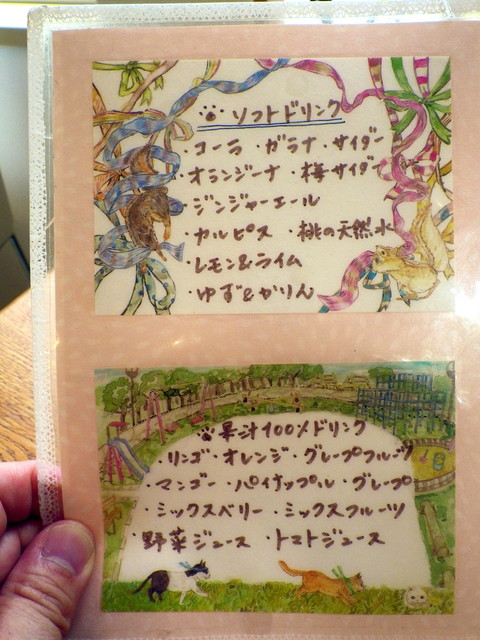 ソフトドリンク
・コーラ ・ガラナ ・サイダー
・オランジーナ ・梅サイダー
・ジンジャーエール
・カルピス ・桃の天然水
・レモン&ライム
・ゆず&かりん
果汁100%ドリンク
・リンゴ ・オレンジ ・グレープフルーツ
・マンゴー ・パイナップル ・グレープ
・ミックスベリー ・ミックスフルーツ
・野菜ジュース ・トマトジュース